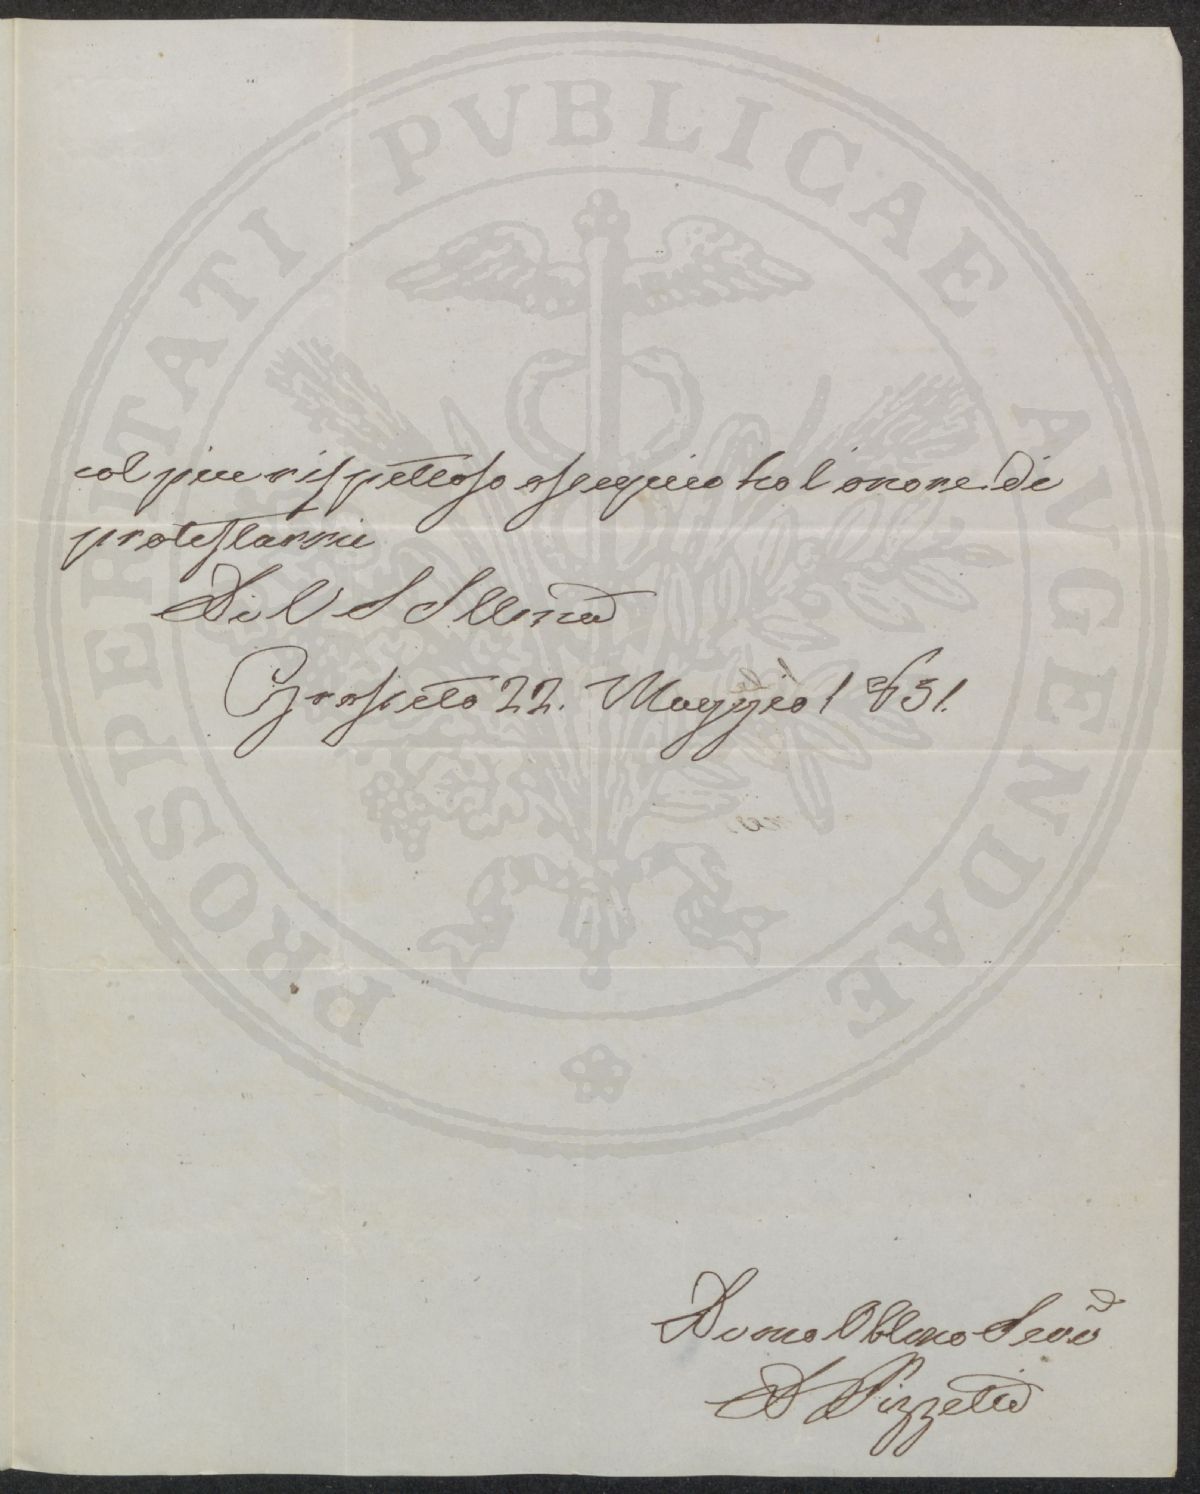 PROSPERITATI PVBLICAE AVGENDAE
col piu rispettoso ossequio ho l'onore di
protestarmi
Di V S Illma
Grosseto 22. Maggio 1851.
Devmo Obblmo Serv
A Pizzetti